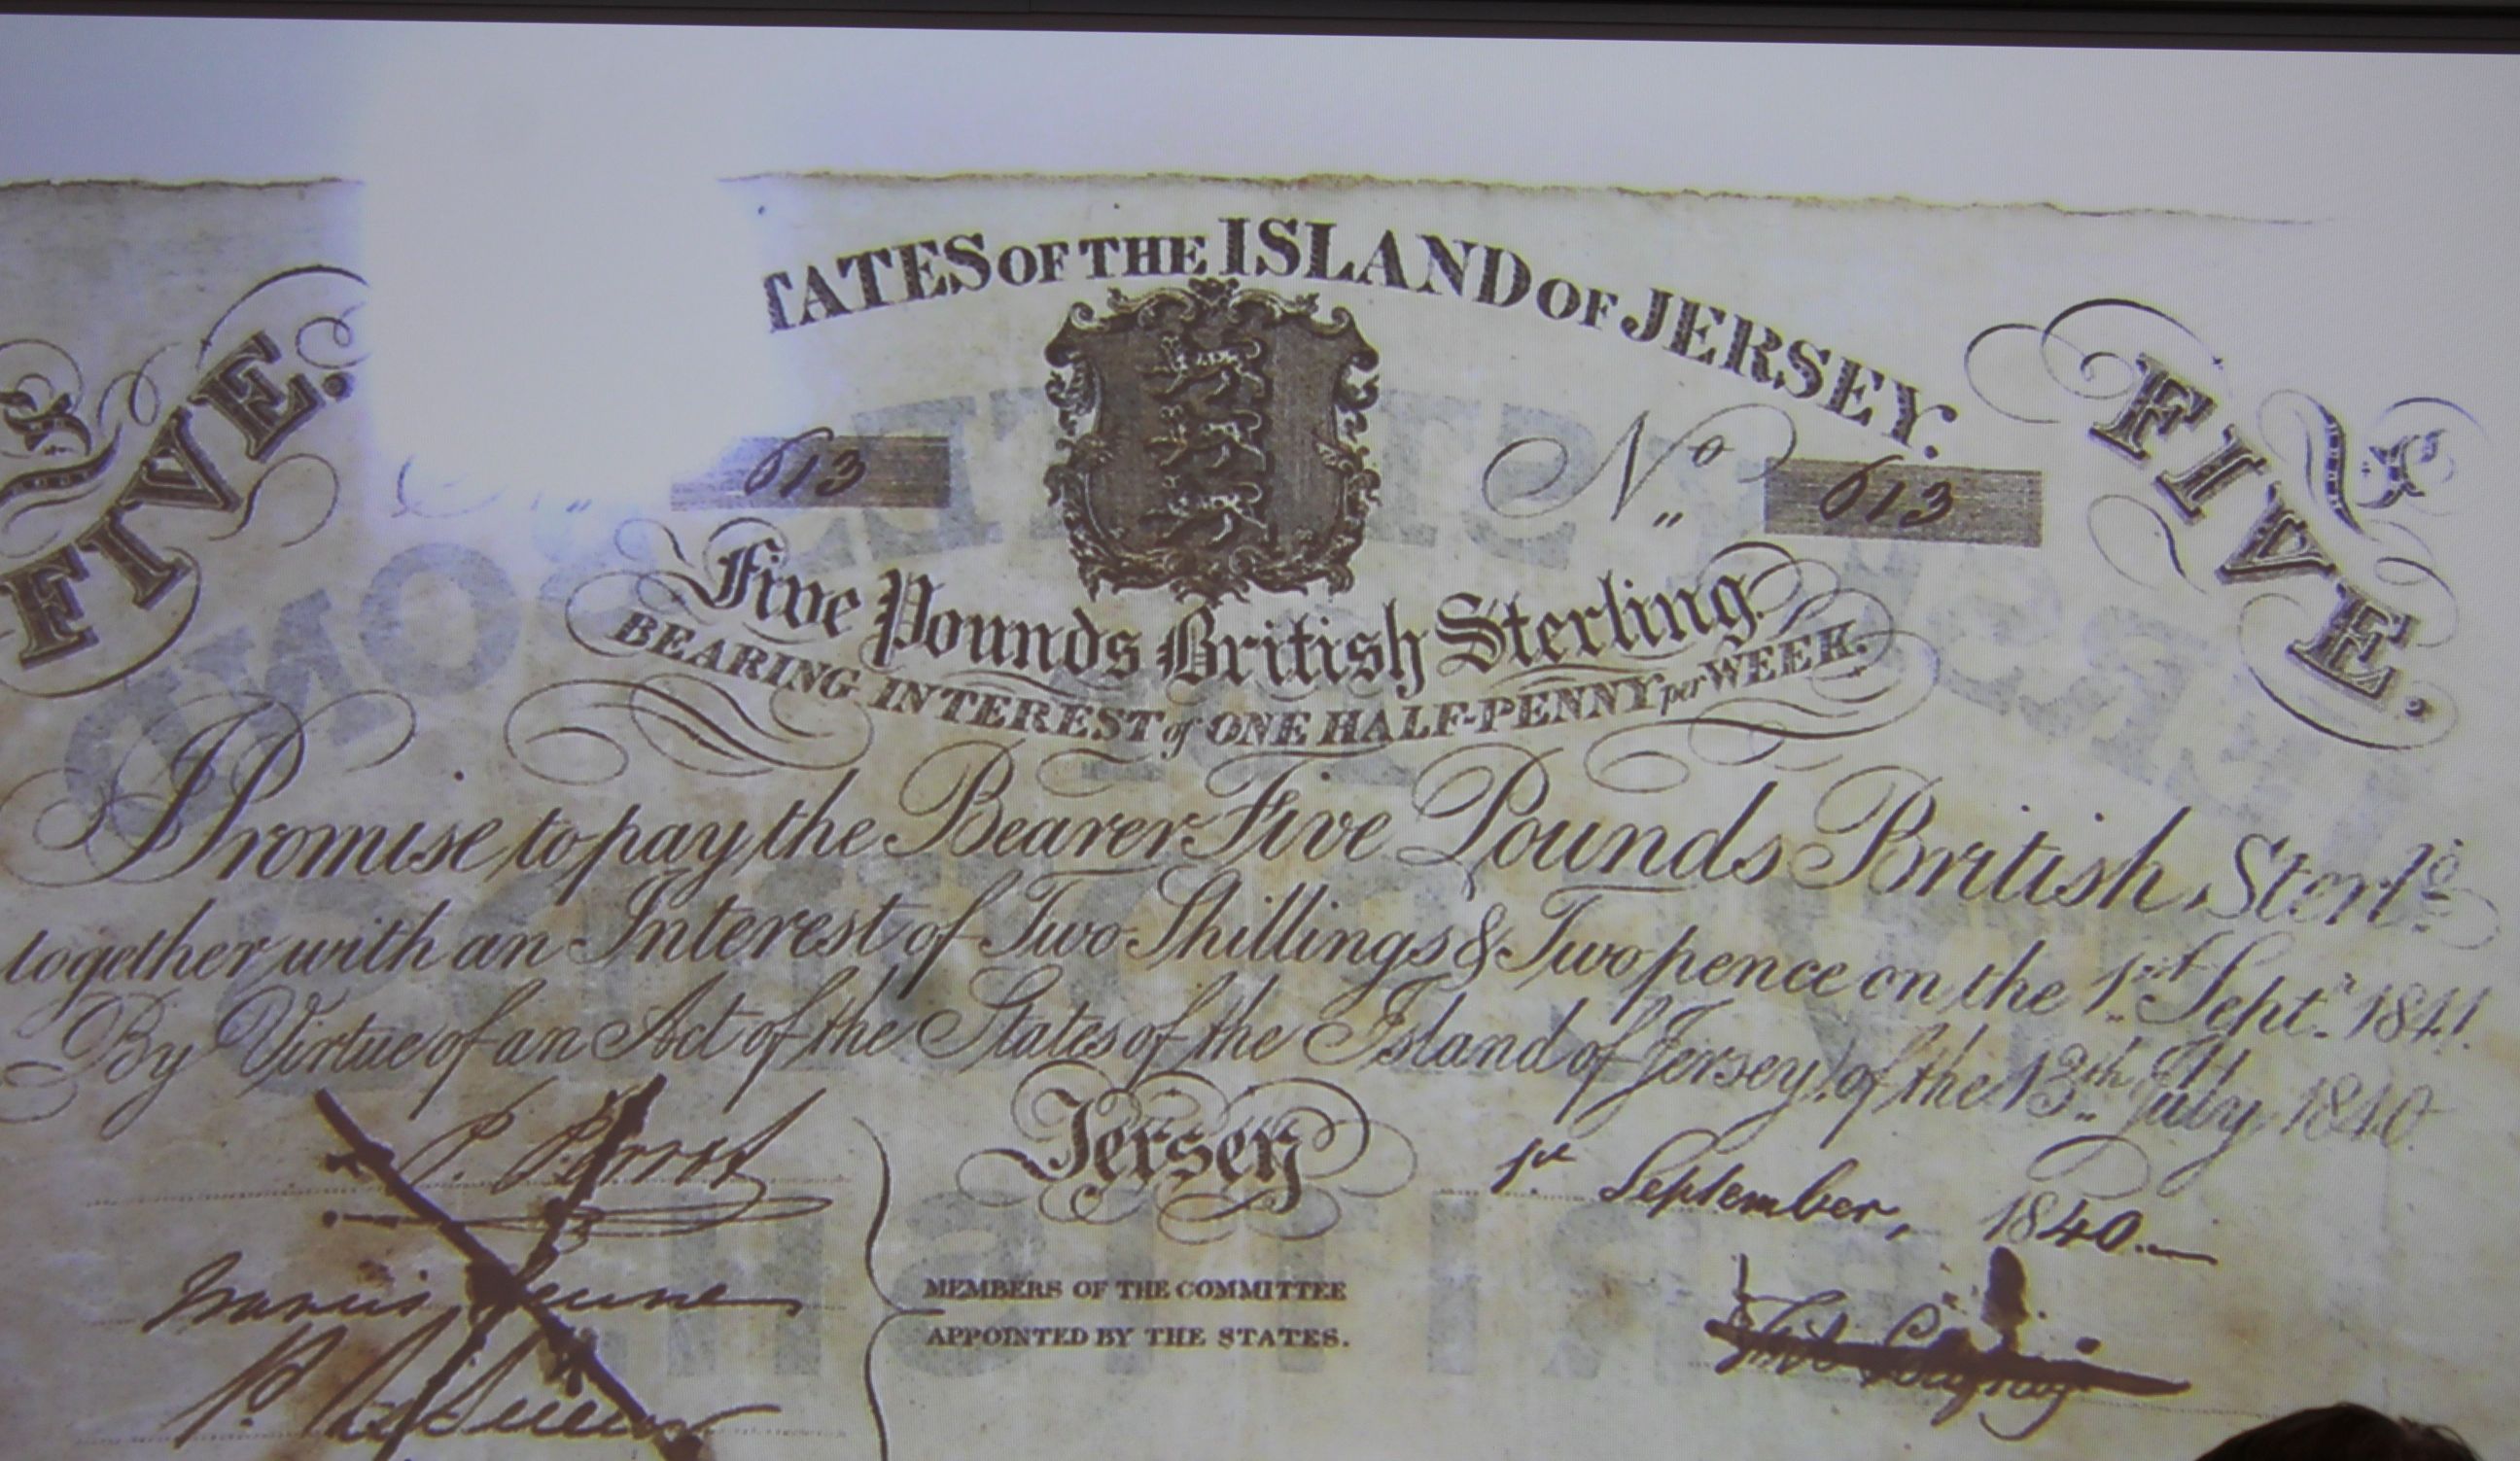 TATES OF THE ISLAND OF JERSEY.
£ FIVE.
FIVE. £
613
No 613
Five Pounds British Sterling
BEARING INTEREST of ONE HALF-PENNY per WEEK.
Promise to pay the Bearer Five Pounds British Sterlg
together with an Interest of Two Shillings & Two pence on the 1st Septr 1841.
By Virtue of an Act of the States of the Island of Jersey, of the 13th July 1840.
Jersey
1st September, 1840.
P. Perrot
Francis Jeune
MEMBERS OF THE COMMITTEE
APPOINTED BY THE STATES.